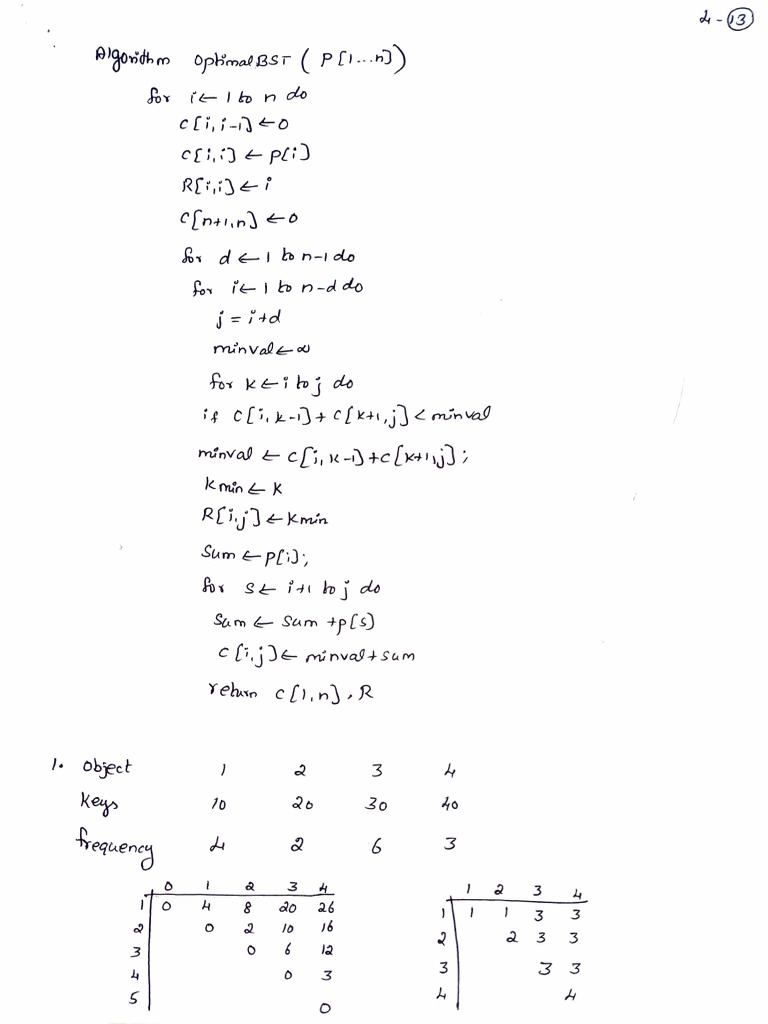 4-13
Algorithm OptimalBST ( P[1...n])
for i← 1 to n do
C[i,i-1] ←0
C[i,i] ← P[i]
R[i,i] ← i
C[n+1,n] ←0
for d ← 1 to n-1 do
for i← 1 to n-d do
j = i+d
minval ← ∞
for k ← i to j do
if C[i,k-1] + C[k+1,j] < minval
minval ← C[i,k-1] +C[k+1,j];
kmin ← k
R[i,j] ← kmin
Sum ← P[i];
for s ← i+1 to j do
Sum ← Sum +p[s]
C[i,j] ← minval + sum
return C[1,n], R
1. Object 1 2 3 4
Keys 10 20 30 40
frequency 4 2 6 3
0 1 2 3 4
1 0 4 8 20 26
2 0 2 10 16
3 0 6 12
4 0 3
5 0
1 2 3 4
1 1 1 3 3
2 2 3 3
3 3 3
4 4